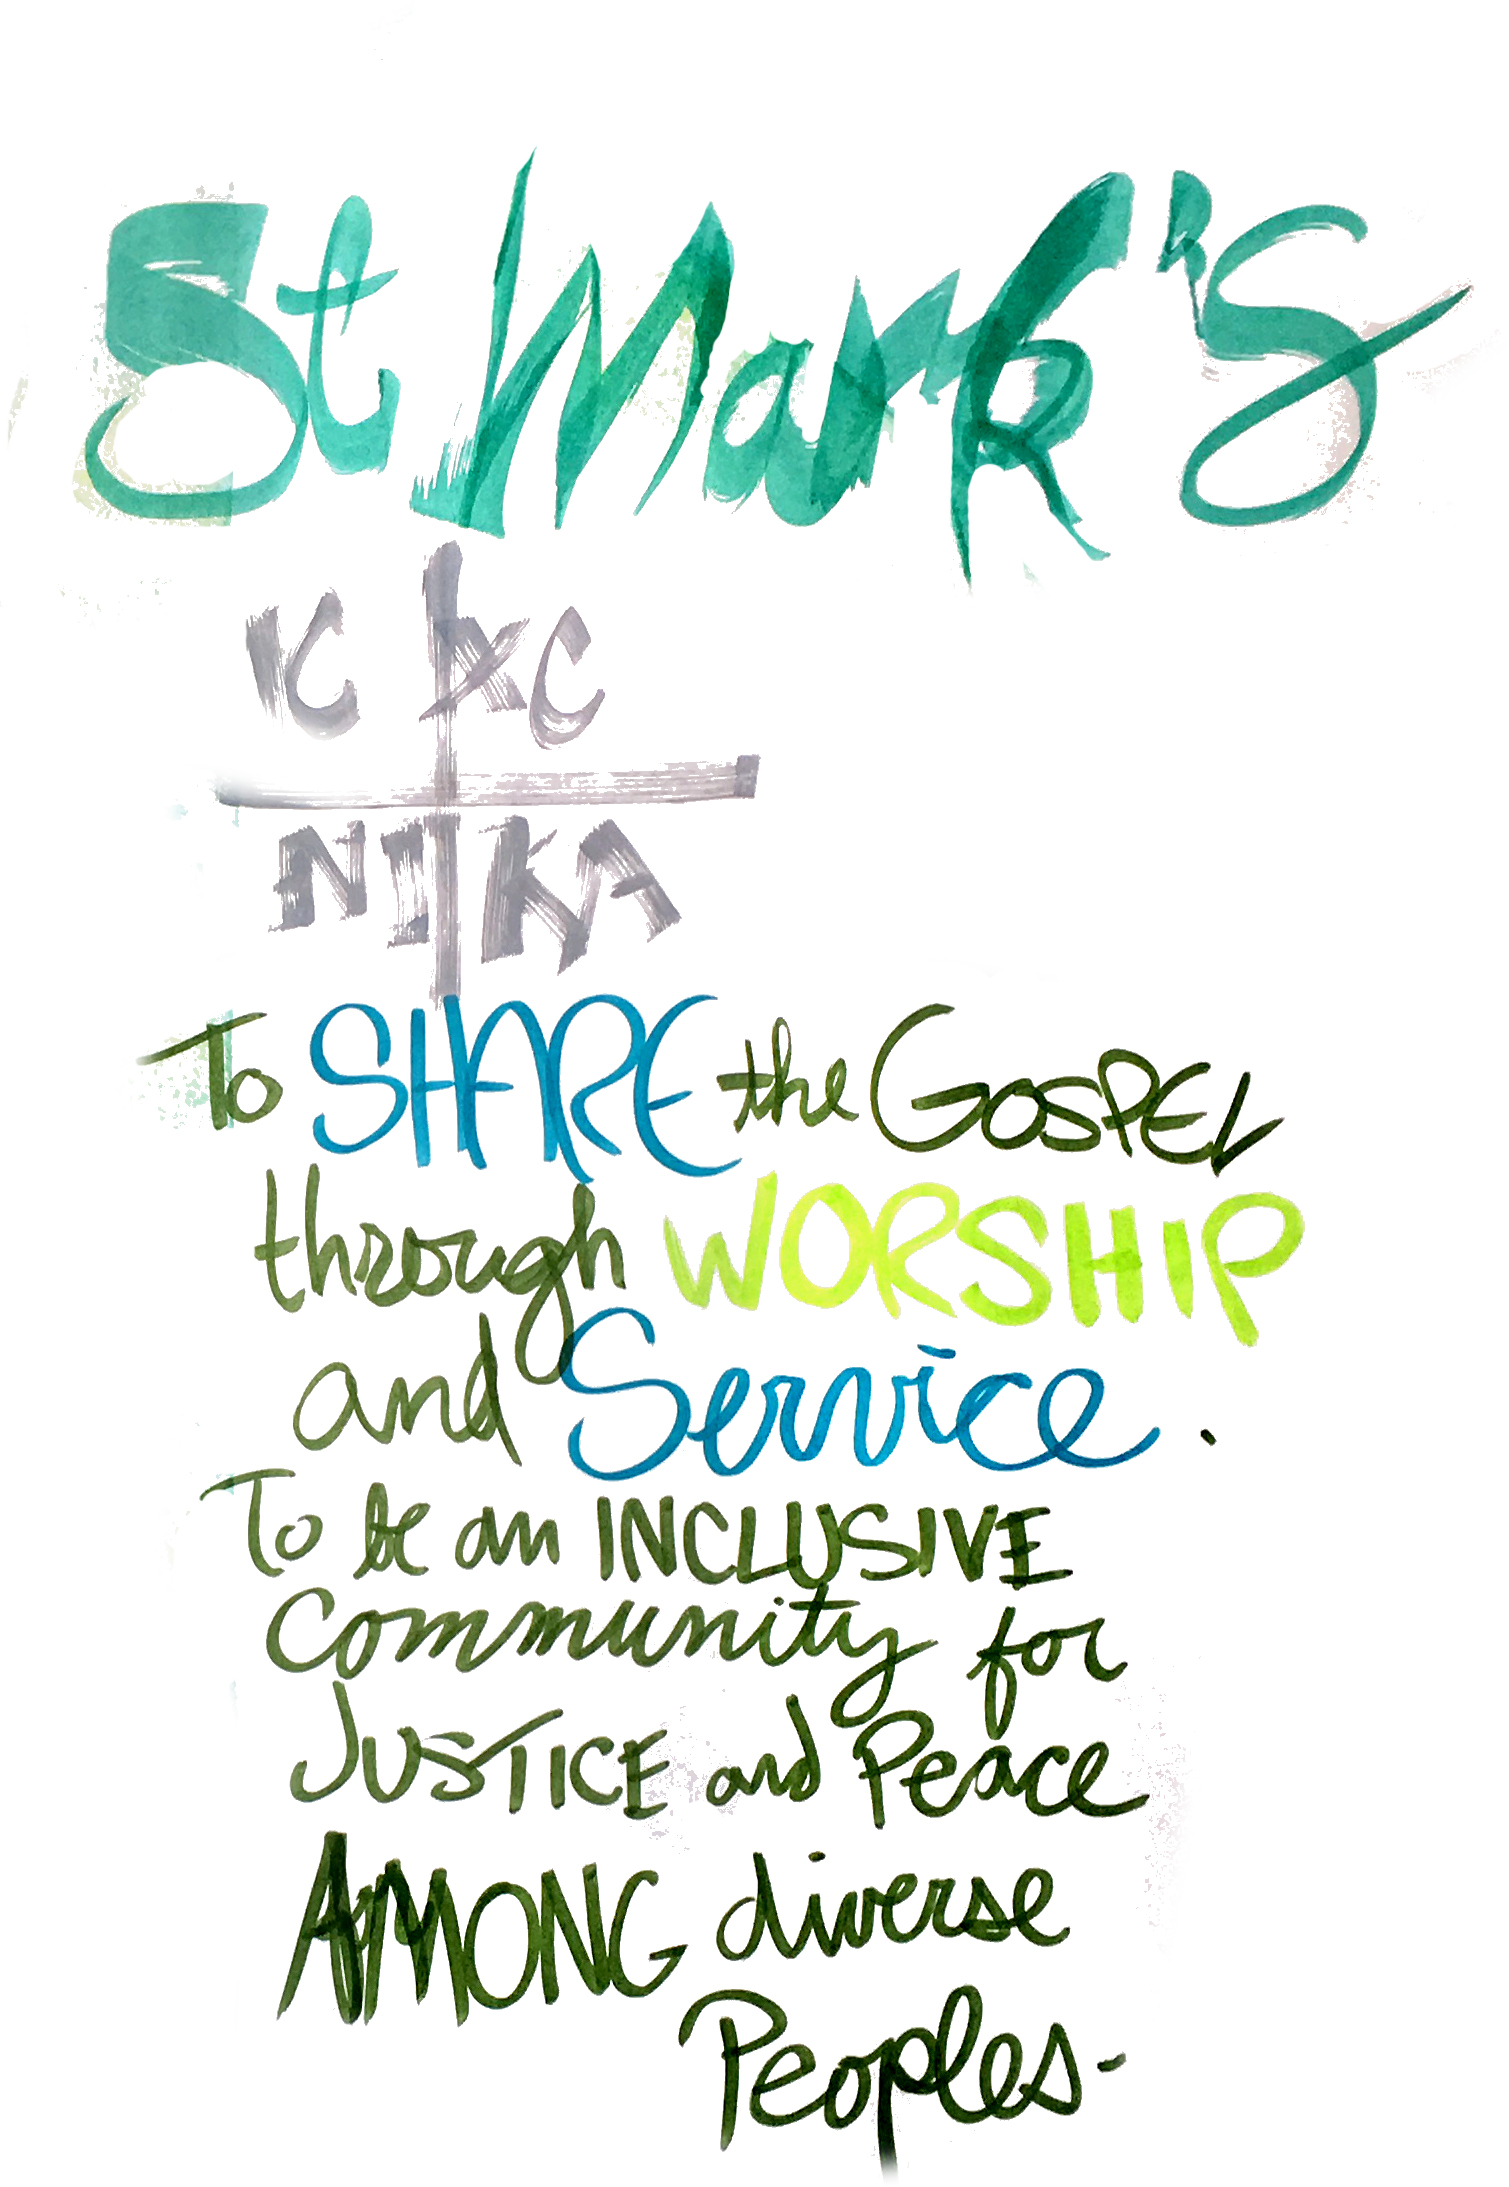 St Mark's
IC XC
NIKA
To SHARE the GOSPEL
through WORSHIP
and Service.
To be an INCLUSIVE
Community for
JUSTICE and Peace
AMONG diverse
Peoples-